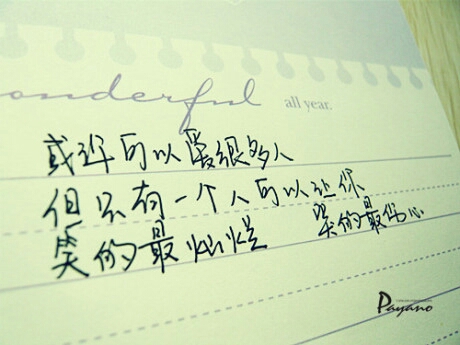 wonderful all year.
或许可以爱很多人
但只有一个人可以让你
笑的最灿烂 哭的最伤心
Payano